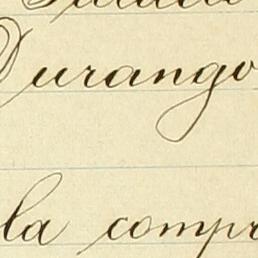 Durango
la compr